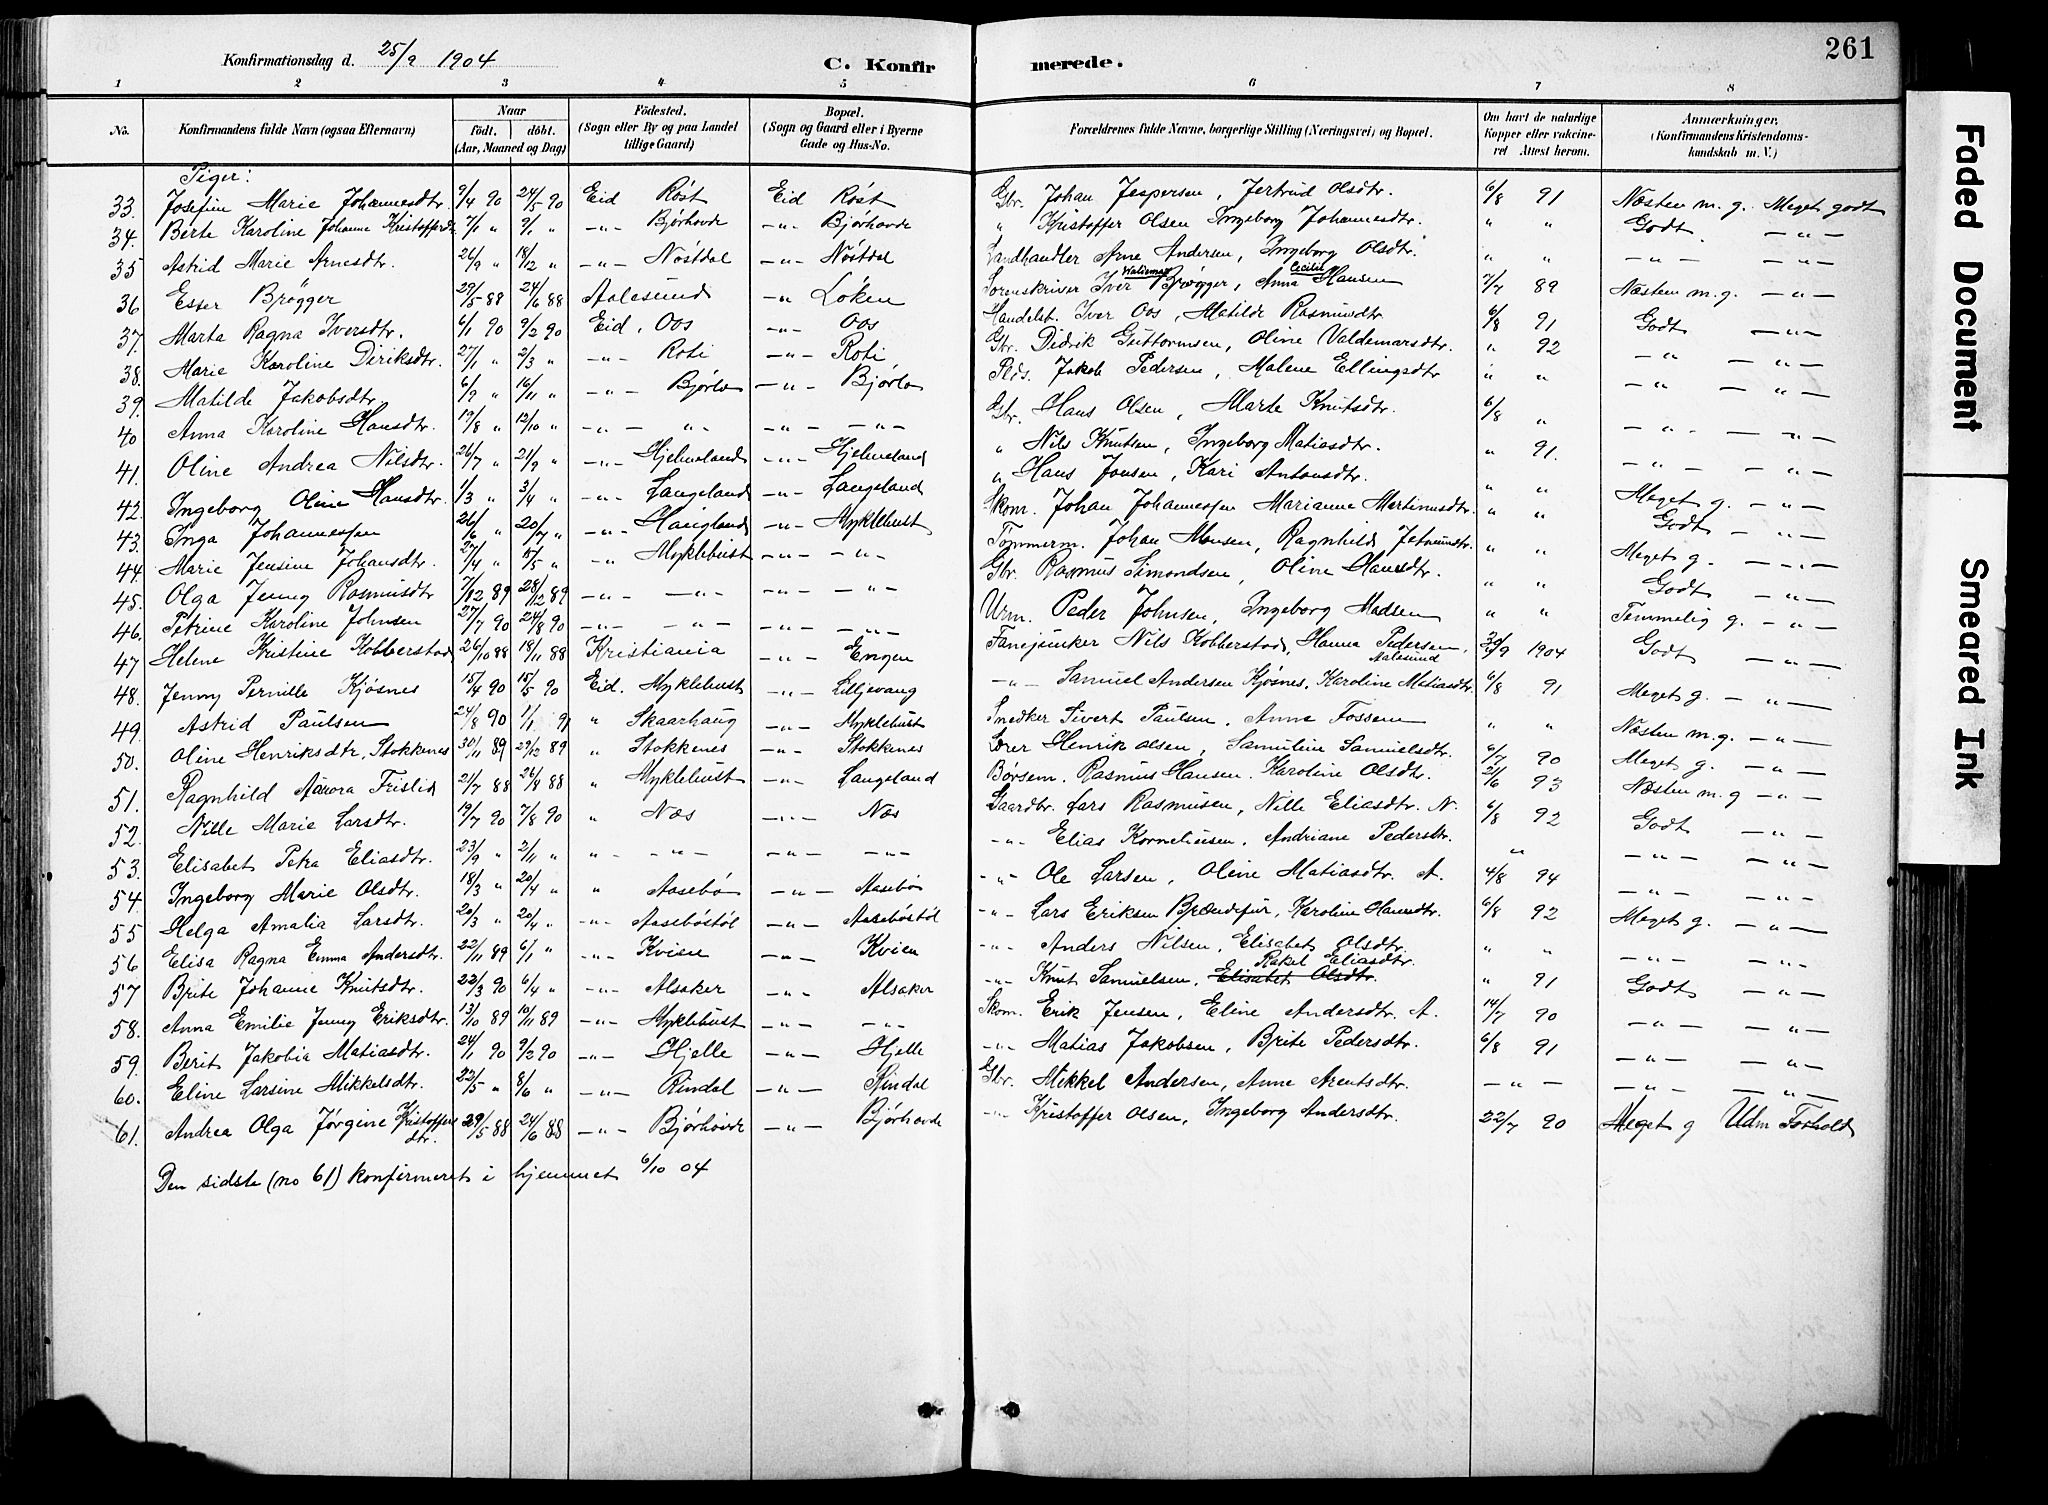 Konfirmationsdag d. 25/9 1904 C. Konfirmerede. 261
1 2 3 4 5 6 7 8
No. Konfirmandens fulde Navn (ogsaa Efternavn) Naar födt. döbt. (Aar, Maaned og Dag) Födested. (Sogn eller By og paa Landet tillige Gaard) Bopæl. (Sogn og Gaard eller i Byerne Gade og Hus-No. Forældrenes fulde Navne, borgerlige Stilling (Næringsvei) og Bopæl. Om havt de naturlige Kopper eller vakcineret Attest herom. Anmærkninger, (Konfirmandens Kristendomskundskab m. V.)
Piger:
33. Josefine Marie Johannesdtr. 9/4 90 24/5 90 Eid Röst Eid Röst Gbr. Johan Jespersen, Jertrud Olsdtr. 6/8 91 Næsten m. g. Meget godt
34. Berte Karoline Johanne Kristoffersdtr. 7/1 " 9/1 " -"- Bjørhovde -"- Bjørhovde " Kristoffer Olsen Ingeborg Johannesdtr. " " Godt -"-
35 Astrid Marie Arnesdtr. 26/9 " 18/12 " -"- Nöstdal -"- Nöstdal Landhandler Arne Andersen, Ingeborg Olsdtr. " " -"- -"-
36 Ester Brøgger 29/5 88 24/6 88 Aalesund -"- Löken Sorenskriver Iver Waldemar Brøgger, Anna Cecilie Hansen 7/7 89 Næsten m. g. -"-
37. Marta Ragna Iversdtr. 6/1 90 9/2 90 Eid, Oos -"- Oos Handelsb. Iver Oos, Matilde Rasmusdtr. 6/8 91 Godt -"-
38. Marie Karoline Diriksdtr. 27/1 " 2/3 " -"- Roti -"- Roti Gbr. Didrik Guttormsen, Oline Valdemarsdtr. " 92 -"- -"-
39. Matilde Jakobsdtr. 6/9 " 16/11 " -"- Bjørlo -"- Bjørlo Plds. Jakob Pedersen, Malene Ellingsdtr " " -"- -"-
40 Anna Karoline Hansdtr. 19/8 " 12/10 " -"- " -"- -"- Gbr. Hans Olsen, Marte Knutsdtr. 6/8 " -"- -"-
41. Oline Andrea Nilsdtr. 26/7 " 21/9 " -"- Hjelmeland -"- Hjelmeland " Nils Knutsen, Ingeborg Matiasdtr. " 91. -"- -"-
42. Ingeborg Oline Hansdtr. 1/3 " 3/4 " -"- Langeland -"- Langeland " Hans Jonsen, Kari Antonsdtr. " " Meget g. -"-
43. Inga Johannessen 26/6 " 20/7 " -"- Haugland -"- Myklebust Skom. Johan Johannessen Marianne Martinusdtr. " " Godt -"-
44. Marie Jensine Johansdtr. 27/4 " 15/5 " -"- Myklebust -"- -"- Tømmerm. Johan Monsen, Ragnhild Jetmundsdtr. " " Meget g. -"-
45. Olga Jenny Rasmusdtr 7/12 89 28/12 89 -"- -"- -"- " Gbr. Rasmus Simondsen, Oline Hansdtr. " " Godt -"-
46. Petrine Karoline Johnsen 27/7 90 24/8 90 -"- -"- -"- -"- Urm. Peder Johnsen, Ingeborg Madsen " " Temmelig g. -"-
47 Helene Kristine Kobberstad 26/10 88 18/11 88 Kristiania -"- Engen Fanejunker Nils Kobberstad, Hanna Pedersen, Aalesund 20/9 1904 Godt -"-
48. Jenny Pernille Kjøsnes 15/4 90 15/5 90 Eid. Myklebust -"- Lilljevang -"- Samuel Andersen Kjøsnes, Karoline Matiasdtr. 6/8 91 Meget g. -"-
49. Astrid Paulsen 24/8 90 1/1 91 " Skaarhaug -"- Myklebust Snedker Sivert Paulsen, Anne Fossem " " Næsten m. g. -"-
50. Oline Henriksdtr. Stokkenes 30/11 89 29/12 89 " Stokkenes -"- Stokkenes Lærer Henrik Olsen, Samuline Samuelsdtr. 6/7 90 Meget g. -"-
51. Ragnhild Aurora Frislid 21/7 88 26/8 88 " Myklebust -"- Langeland Børsem. Rasmus Hansen, Karoline Olsdtr. 21/6 93 Næsten m. g -"-
52. Nille Marie Larsdtr. 19/7 90 7/8 90 " Næs -"- Næs Gaardbr. Lars Rasmusen, Nille Eliasdtr. N. 6/8 92 Godt -"-
53. Elisabet Petra Eliasdtr. 23/9 " 2/11 " " -"- -"- -"- -"- Elias Korneliusen, Andriane Pedersdtr. " -"- -"-
54. Ingeborg Marie Olsdtr. 18/3 " 20/4 " " Aasebø -"- Aasebø -"- Ole Larsen, Oline Matiasdtr. A. 4/8 94 -"- -"-
55 Helga Amalia Larsdtr. 20/3 " 20/4 " -"- Aasebøstöl -"- Aasebøstöl -"- Lars Eriksen Brændefur, Karoline Hansdtr. 6/8 92 Meget g. -"-
56 Elisa Ragna Emma Andersdtr. 22/11 89 6/1 " -"- Kvien -"- Kvien -"- Anders Nilsen, Elisabet Olsdtr. " " -"- -"-
57 Brite Johanne Knutsdtr. 22/3 90 6/4 " -"- Alsaker -"- Alsaker -"- Knut Samuelsen, Elisabet Olsdtr. Rakel Eliasdtr. " 91 Godt -"-
58. Anna Emilie Jenny Eriksdtr. 13/10 89 10/11 89 -"- Myklebust -"- -"- Skom. Erik Jensen, Eline Andersdtr. A. 14/7 90 -"- -"-
59. Berit Jakobia Matiasdtr. 24/1 90 9/2 90 -"- Hjelle -"- Hjelle -"- Matias Jakobsen, Brite Pedersdtr. 6/8 91 -"- -"-
60. Eline Larsine Mikkelsdtr. 22/5 " 8/6 " -"- Rindal -"- Rindal Gbr. Mikkel Andersen, Anne Arentsdtr. -"- -"- -"-
61. Andrea Olga Jørgine Kristoffersdtr. 29/5 88 24/6 88 -"- Bjørhovde -"- Bjørhovde -"- Kristoffer Olsen, Ingeborg Andersdtr. 22/7 90 Meget g Udm Forhold
Den sidste (no 61) konfirmeret i hjemmet 6/10 04
Faded Document
Smeared Ink